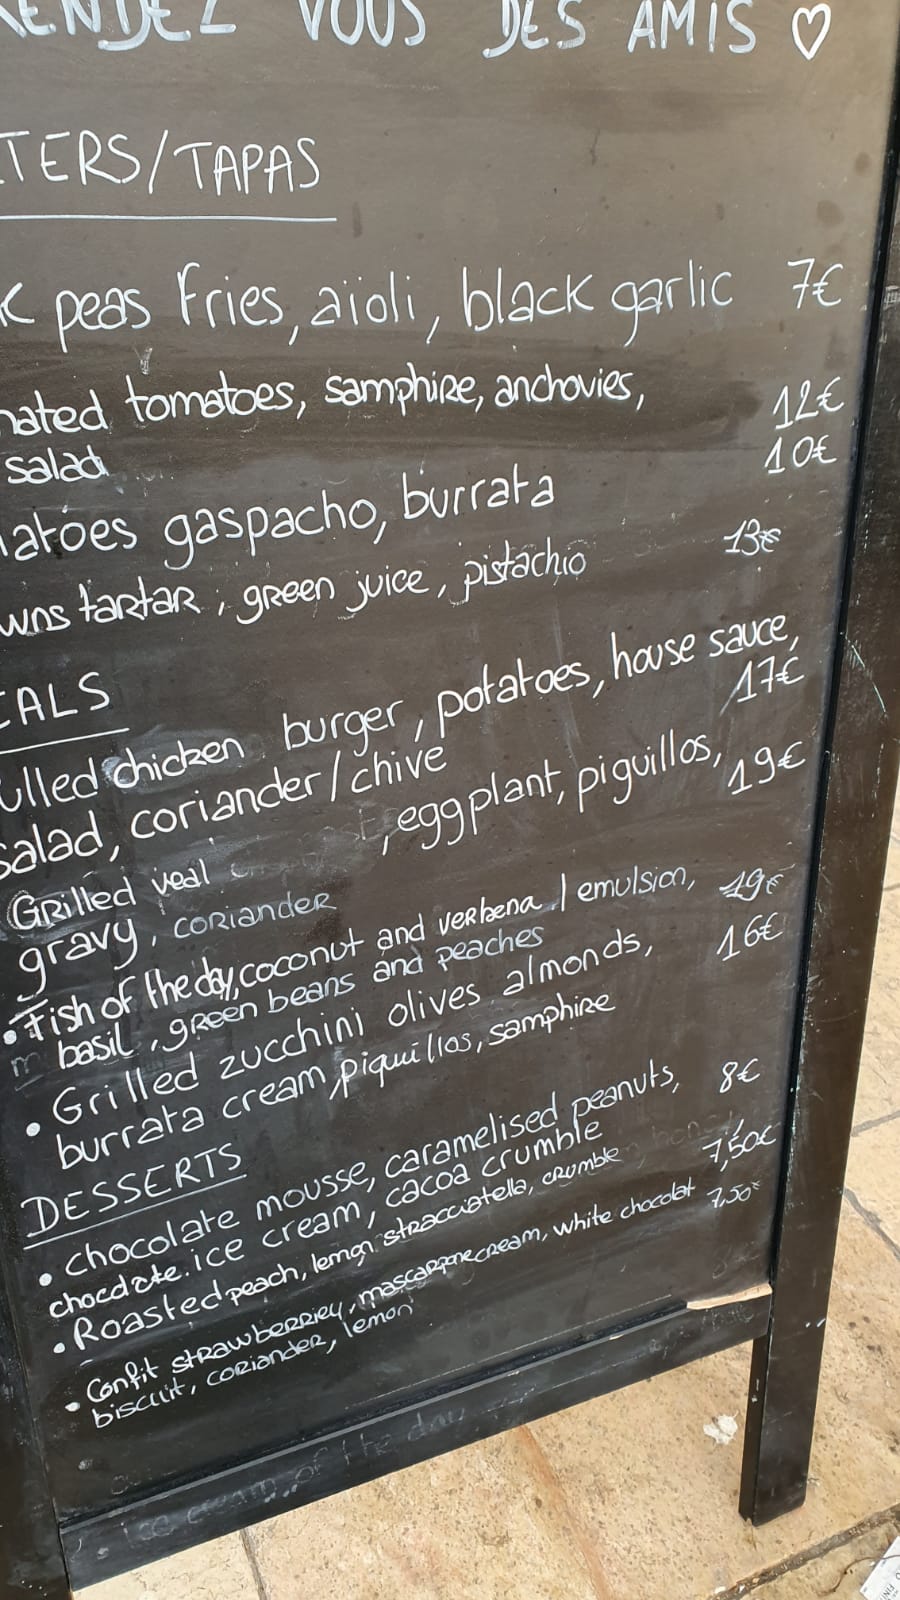 RENDEZ VOUS DES AMIS ♡
TERS/TAPAS
K peas fries, aïoli, black garlic 7€
nated tomatoes, samphire, anchovies, 12€
salad 10€
atoes gaspacho, burrata
wns tartar, green juice, pistachio 13€
EALS
ulled chicken burger, potatoes, house sauce,
salad, coriander/chive 17€
Grilled veal , eggplant, piguillos, 19€
gravy, coriander
• Fish of the day, coconut and verbena / emulsion, 19€
basil, green beans and peaches
• Grilled zucchini olives almonds, 16€
burrata cream, piquillos, samphire
DESSERTS
• chocolate mousse, caramelised peanuts, 8€
chocolate ice cream, cacoa crumble
• Roasted peach, lemon stracciatella, crumble 7,50€
• Confit strawberriey, mascarpone cream, white chocolat 7,50€
biscuit, coriander, lemon
Ice cream of the day